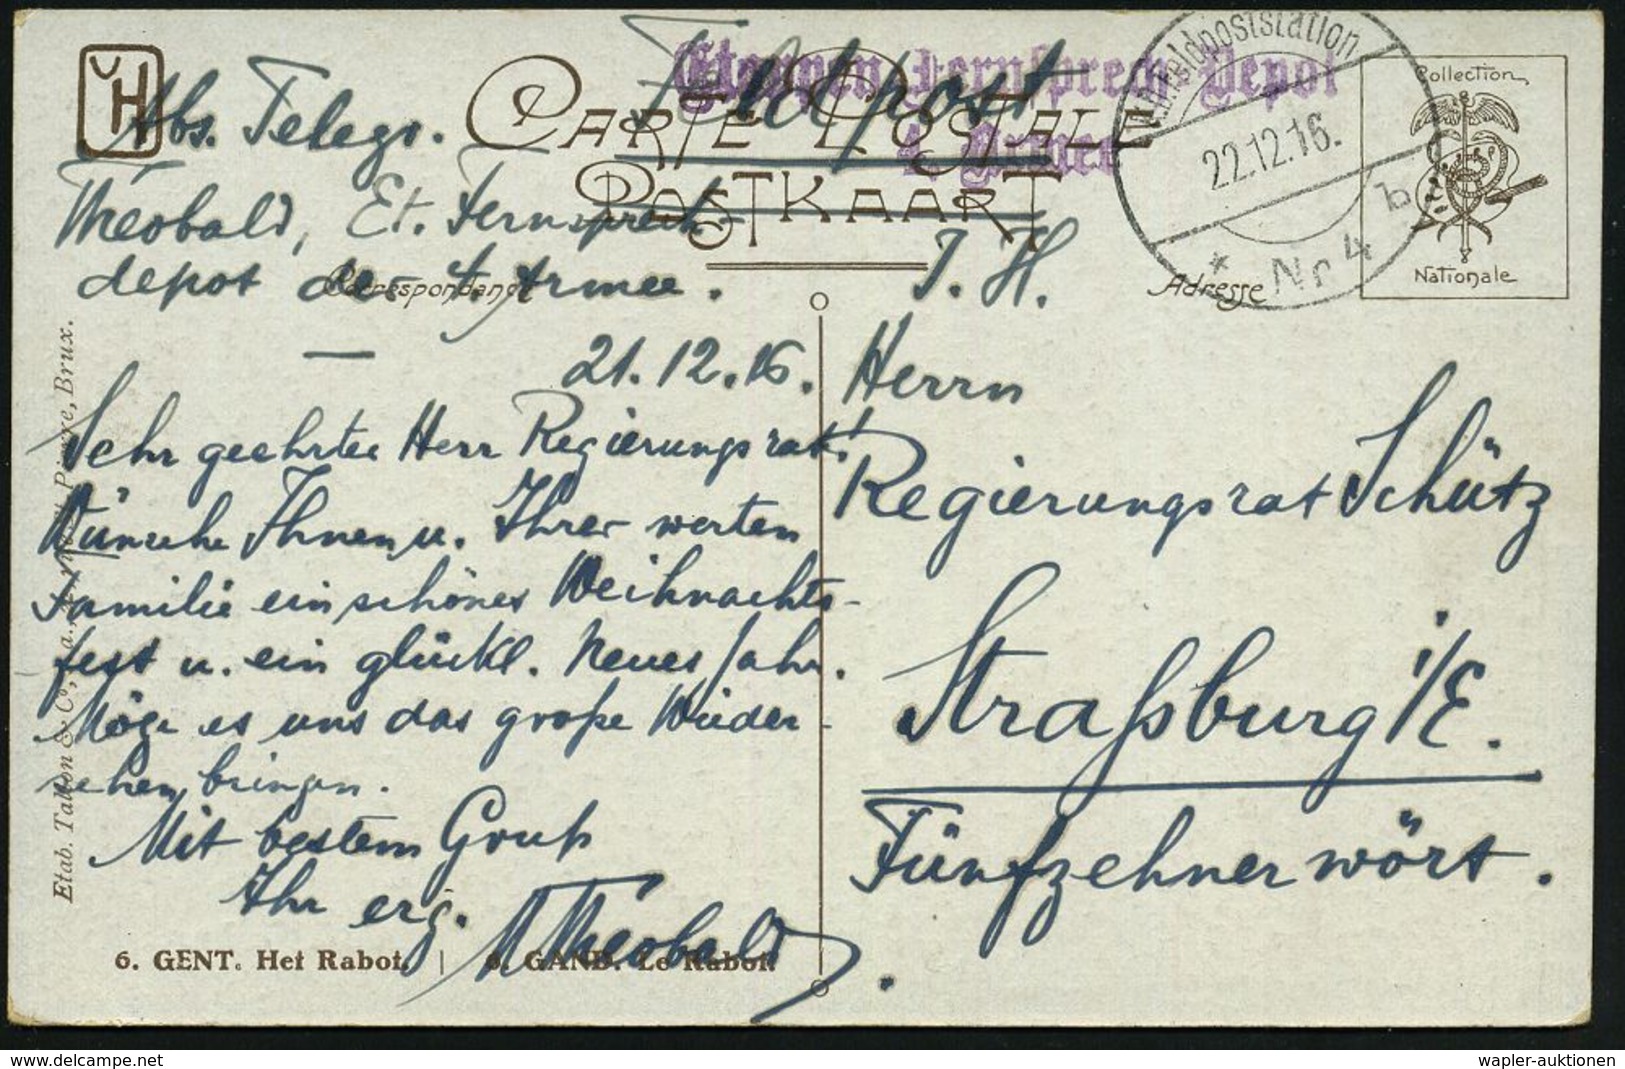 Feldpost
Etappen-Fernsprech-Depot
4. Armee
Feldpoststation
22.12.16.
* Nr 4 b
Collection
Nationale
CARTE POSTALE
POSTKAART
Correspondance
Adresse
Abs. Telegr.
Theobald, Et. Fernsprech-
depot der 4. Armee.
21.12.16.
Sehr geehrter Herr Regierungsrat!
Wünsche Ihnen u. Ihrer werten
Familie ein schönes Weihnachts-
fest u. ein glückl. Neues Jahr.
Möge es uns das große Wieder-
sehen bringen.
Mit bestem Gruß
Ihr erg.
Theobald
J. H.
Herrn
Regierungsrat Schütz
Straßburg i/E.
Fünfzehnerwört.
6. GENT. Het Rabot. | 6. GAND. Le Rabot.
Pierre, Brux.
Etab. Tallon & Co,
© the-philatelist.com
wapler-auktionen